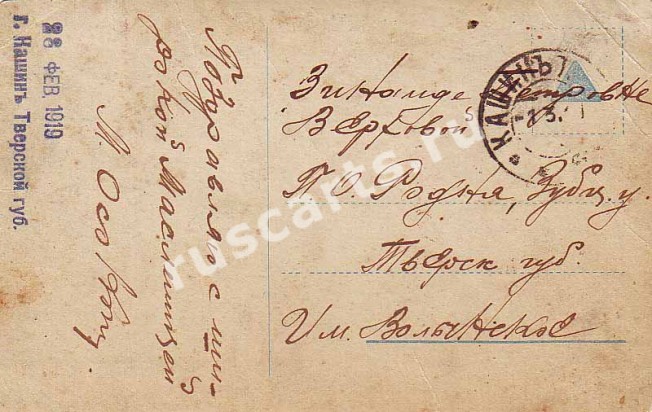 28 ФЕВ 1919
г. Кашинъ Тверской губ.
Поздравляю с ши-
рокой Масляницей
КАШИНЪ
Зинаиде Петровне
Верховой
П. О. Родня, Зубц. у.
Тверск губ.
Им. Волынское
ruscarts.ru